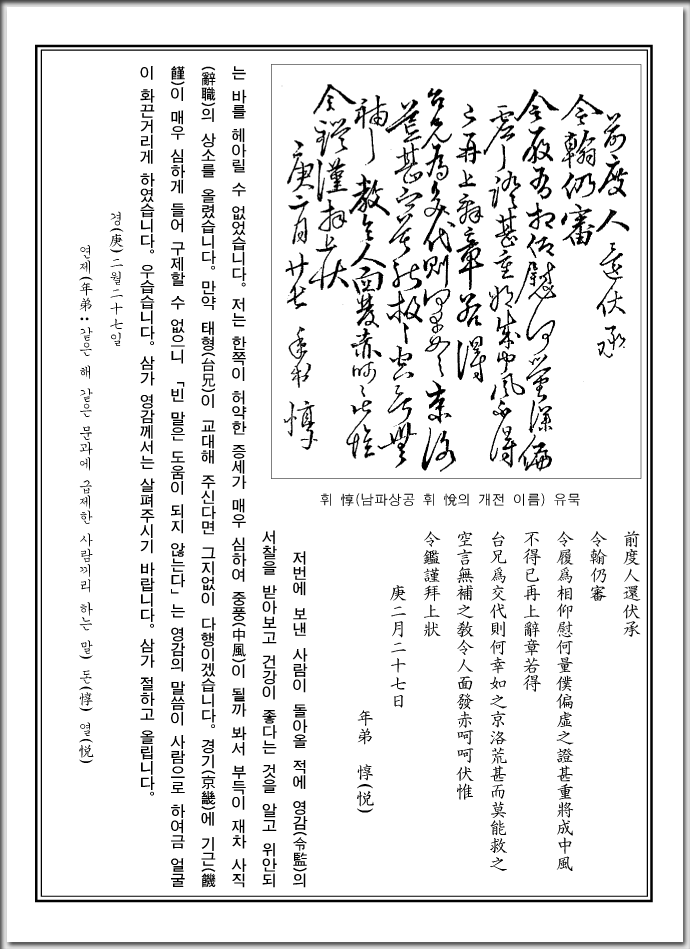 前度人還伏承
令翰仍審
令履爲相仰慰何量僕偏
虛之證甚重將成中風不得
已再上辭章若得
台兄爲交代則何幸如之京洛
荒甚而莫能救之空言無
補之教令人面發赤呵呵伏惟
令鑑謹拜上狀
庚二月廿七 年弟 惇
휘 惇(남파상공 휘 悅의 개전 이름) 유묵
前度人還伏承
令翰仍審
令履爲相仰慰何量僕偏虛之證甚重將成中風
不得已再上辭章若得
台兄爲交代則何幸如之京洛荒甚而莫能救之
空言無補之敎令人面發赤呵呵伏惟
令鑑謹拜上狀
庚二月二十七日
年弟 惇(悅)
저번에 보낸 사람이 돌아올 적에 영감(令監)의
서찰을 받아보고 건강이 좋다는 것을 알고 위안되
는 바를 헤아릴 수 없었습니다. 저는 한쪽이 허약한 증세가 매우 심하여 중풍(中風)이 될까 봐서 부득이 재차 사직
(辭職)의 상소를 올렸습니다. 만약 태형(台兄)이 교대해 주신다면 그지없이 다행이겠습니다. 경기(京畿)에 기근(饑
饉)이 매우 심하게 들어 구제할 수 없으니 「빈 말은 도움이 되지 않는다」는 영감의 말씀이 사람으로 하여금 얼굴
이 화끈거리게 하였습니다. 우습습니다. 삼가 영감께서는 살펴주시기 바랍니다. 삼가 절하고 올립니다.
경(庚)二월二十七일
연제(年弟:같은 해 같은 문과에 급제한 사람끼리 하는 말) 돈(惇) 열(悅)